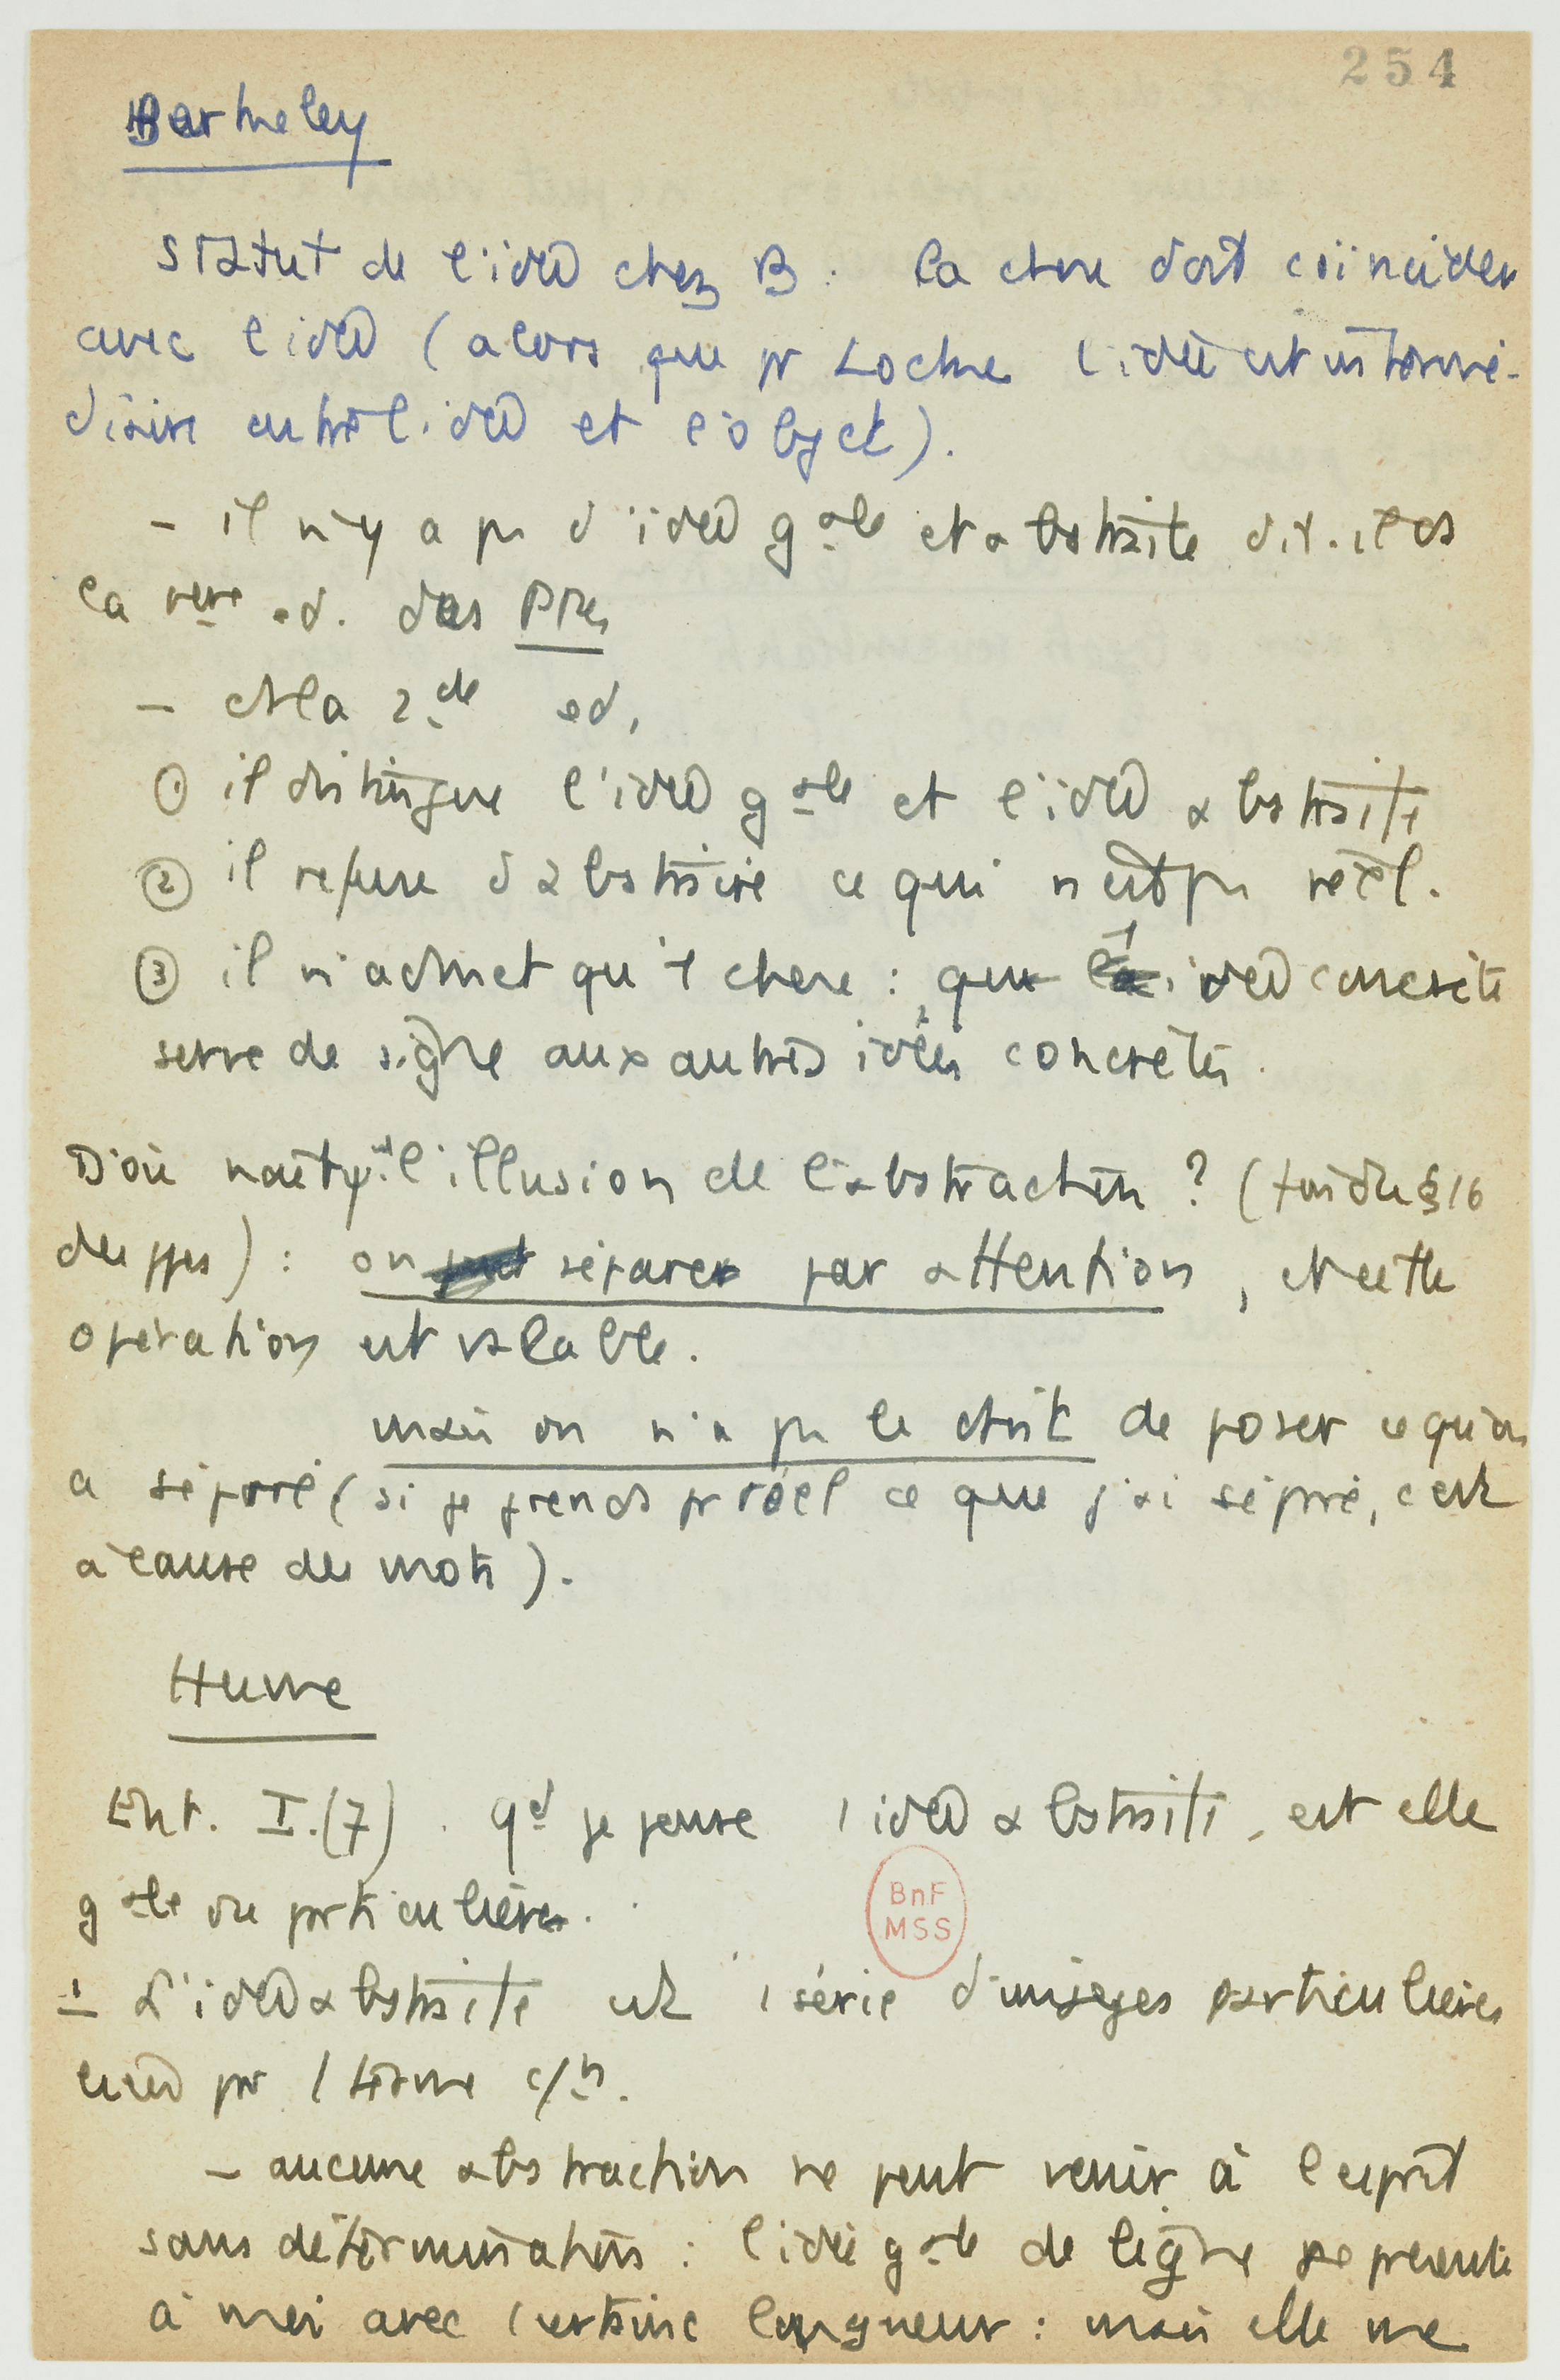 254
Berkeley
Statut de l'idée chez B : la chose doit coïncider
avec l'idée (alors que pr Locke l'idée est intermé-
diaire entre l'idée et l'objet).
- il n'y a pas d'idée gale et abstraite dit-il ds
la 1ère ed. des PPes
- et ds la 2de ed.
① il distingue l'idée gale et l'idée abstraite
② il refuse d'abstraire ce qui n'est pas réel.
③ il n'admet qu'1 chose : que 1 idée concrète
serve de signe aux autres idées concrètes.
D'où naît l'illusion de l'abstraction ? (§16
des ppes) : on séparer par attention, et cette
opération est valable.
mais on n'a pas le droit de poser ce qu'on
a séparé (si je prends pr réel ce que j'ai séparé, c'est
à cause des mots).
Hume
Ent. I.(7). qd je pense 1 idée abstraite, est elle
gale ou particulière.
- L'idée abstraite est 1 série d'images particulières
liées par 1 terme c/n.
- aucune abstraction ne peut venir à l'esprit
sans détermination : l'idée gale de ligne se présente
à moi avec 1 certaine longueur : mais elle me
BnF
MSS